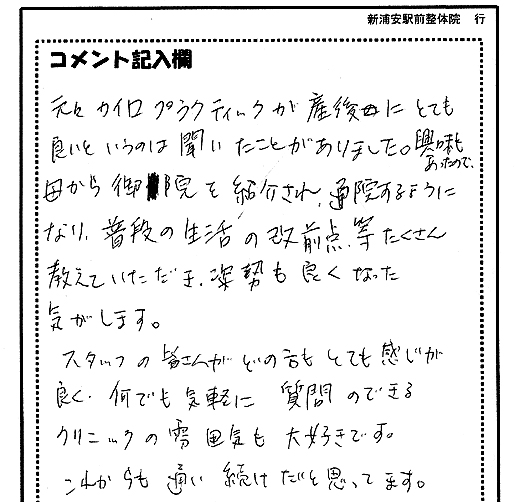 新浦安駅前整体院　行
コメント記入欄
元々カイロプラクティックが産後にとても
良いというのは聞いたことがありました。興味も
あったので、
母から御院を紹介され、通院するように
なり、普段の生活の改前点、等たくさん
教えていただき、姿勢も良くなった
気がします。
スタッフの皆さんがどの方もとても感じが
良く、何でも気軽に質問のできる
クリニックの雰囲気も大好きです。
これからも通い続けたいと思ってます。